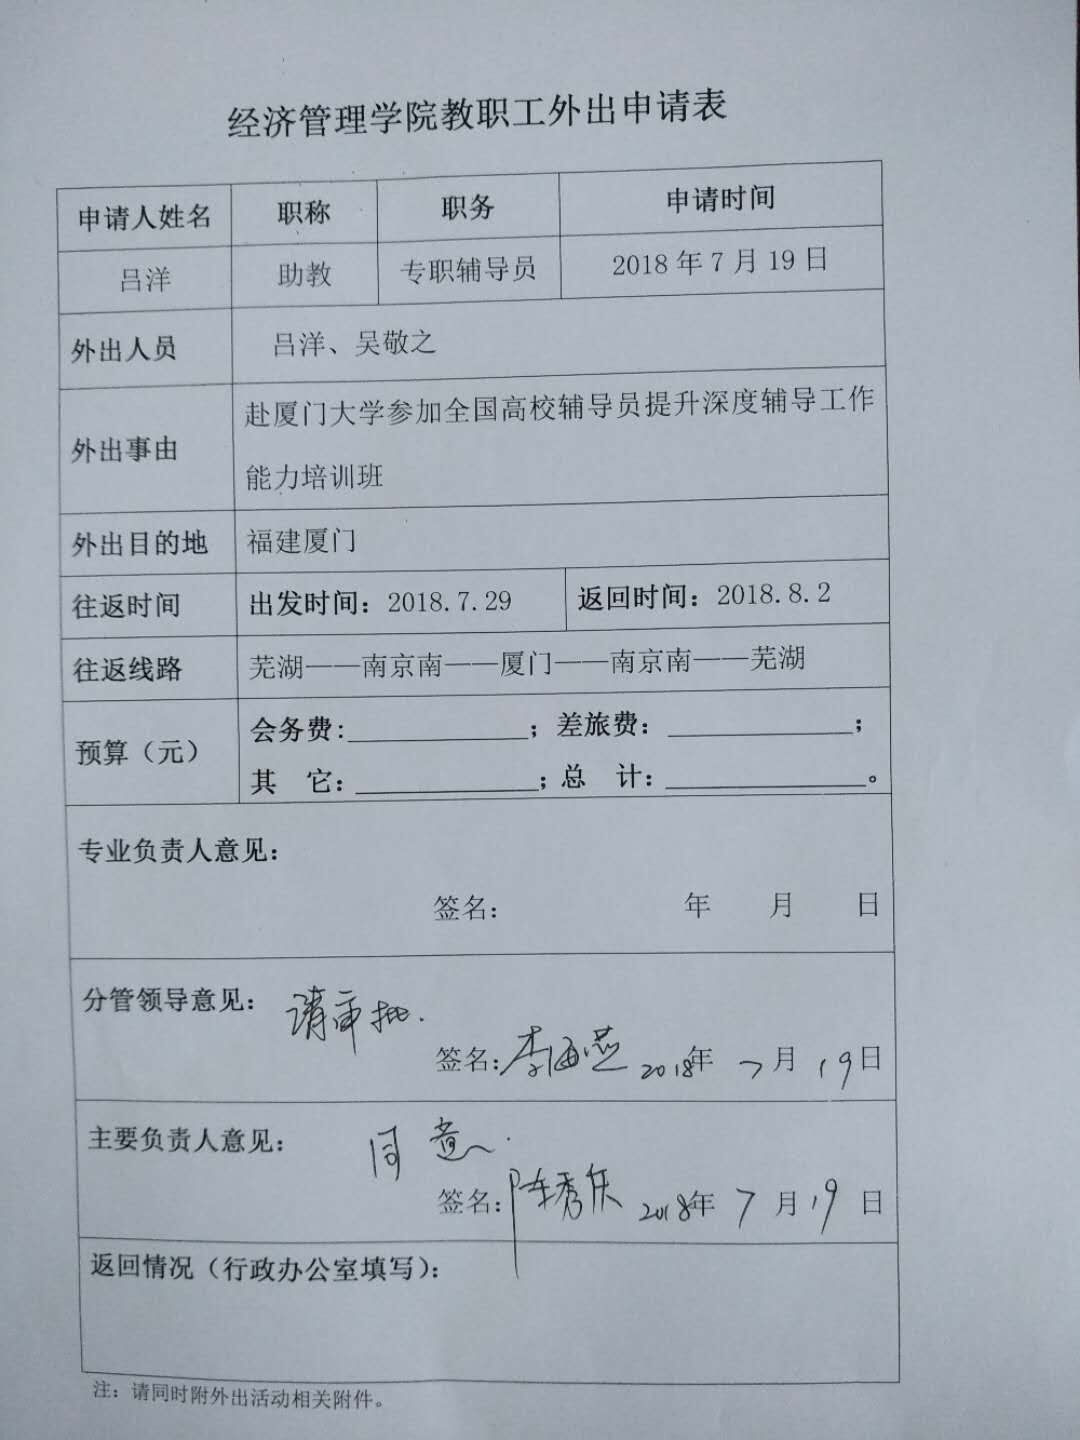 经济管理学院教职工外出申请表
申请人姓名 职称 职务 申请时间
吕洋 助教 专职辅导员 2018年7月19日
外出人员 吕洋、吴敬之
外出事由 赴厦门大学参加全国高校辅导员提升深度辅导工作
能力培训班
外出目的地 福建厦门
往返时间 出发时间：2018.7.29 返回时间：2018.8.2
往返线路 芜湖——南京南——厦门——南京南——芜湖
预算（元） 会务费：____________；差旅费：____________；
其 它：____________；总 计：____________。
专业负责人意见：
签名： 年 月 日
分管领导意见： 请审批.
签名：李海燕 2018年 7月 19日
主要负责人意见： 同意.
签名：陈秀 2018年 7月 19日
返回情况（行政办公室填写）：
注：请同时附外出活动相关附件。